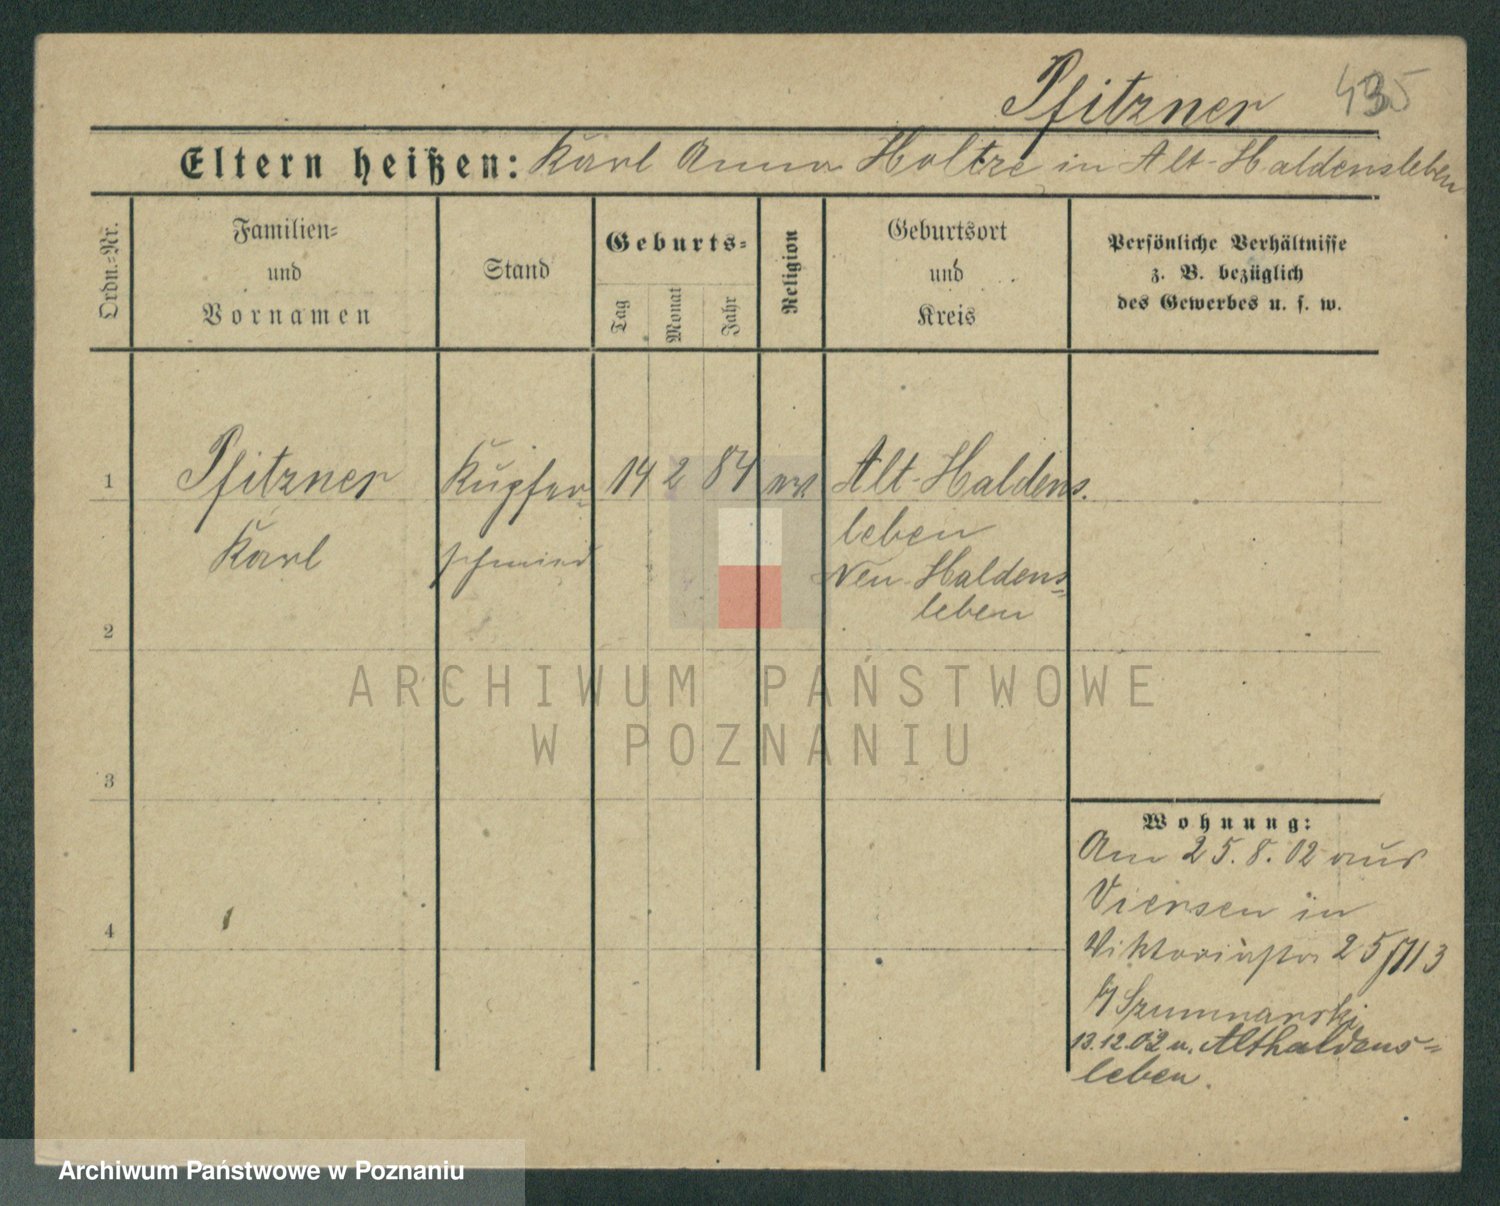 Pfitzner 435
Eltern heißen: Karl Anna Holtze in Alt-Haldensleben
Ordn.=Nr.
Familien=
und
Vornamen
Stand
Geburts=
Tag
Monat
Jahr
Religion
Geburtsort
und
Kreis
Persönliche Verhältnisse
z. B. bezüglich
des Gewerbes u. s. w.
1 Pfitzner Kupfer= 14 2 84 Alt-Haldens.
Karl schmied leben
Neu-Haldens=
leben
2
3
4
Wohnung:
Am 25.8.02 aus
Viersen in
Viktoriastr 25/713
b/ Szumnarski
13.12.02 n. Althaldens=
leben.
ARCHIWUM PAŃSTWOWE
W POZNANIU
Archiwum Państwowe w Poznaniu